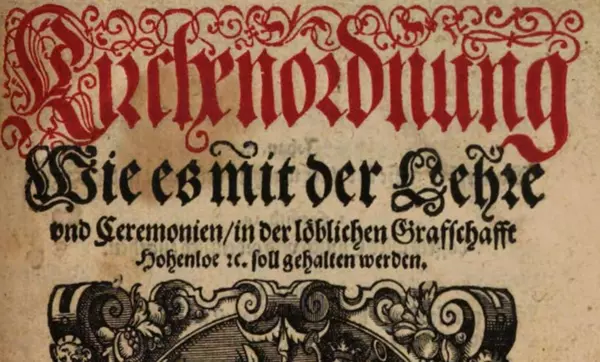 Kirchenordnung
Wie es mit der Lehre
vnd Ceremonien/in der löblichen Graffschafft
Hohenloe ꝛc. soll gehalten werden.